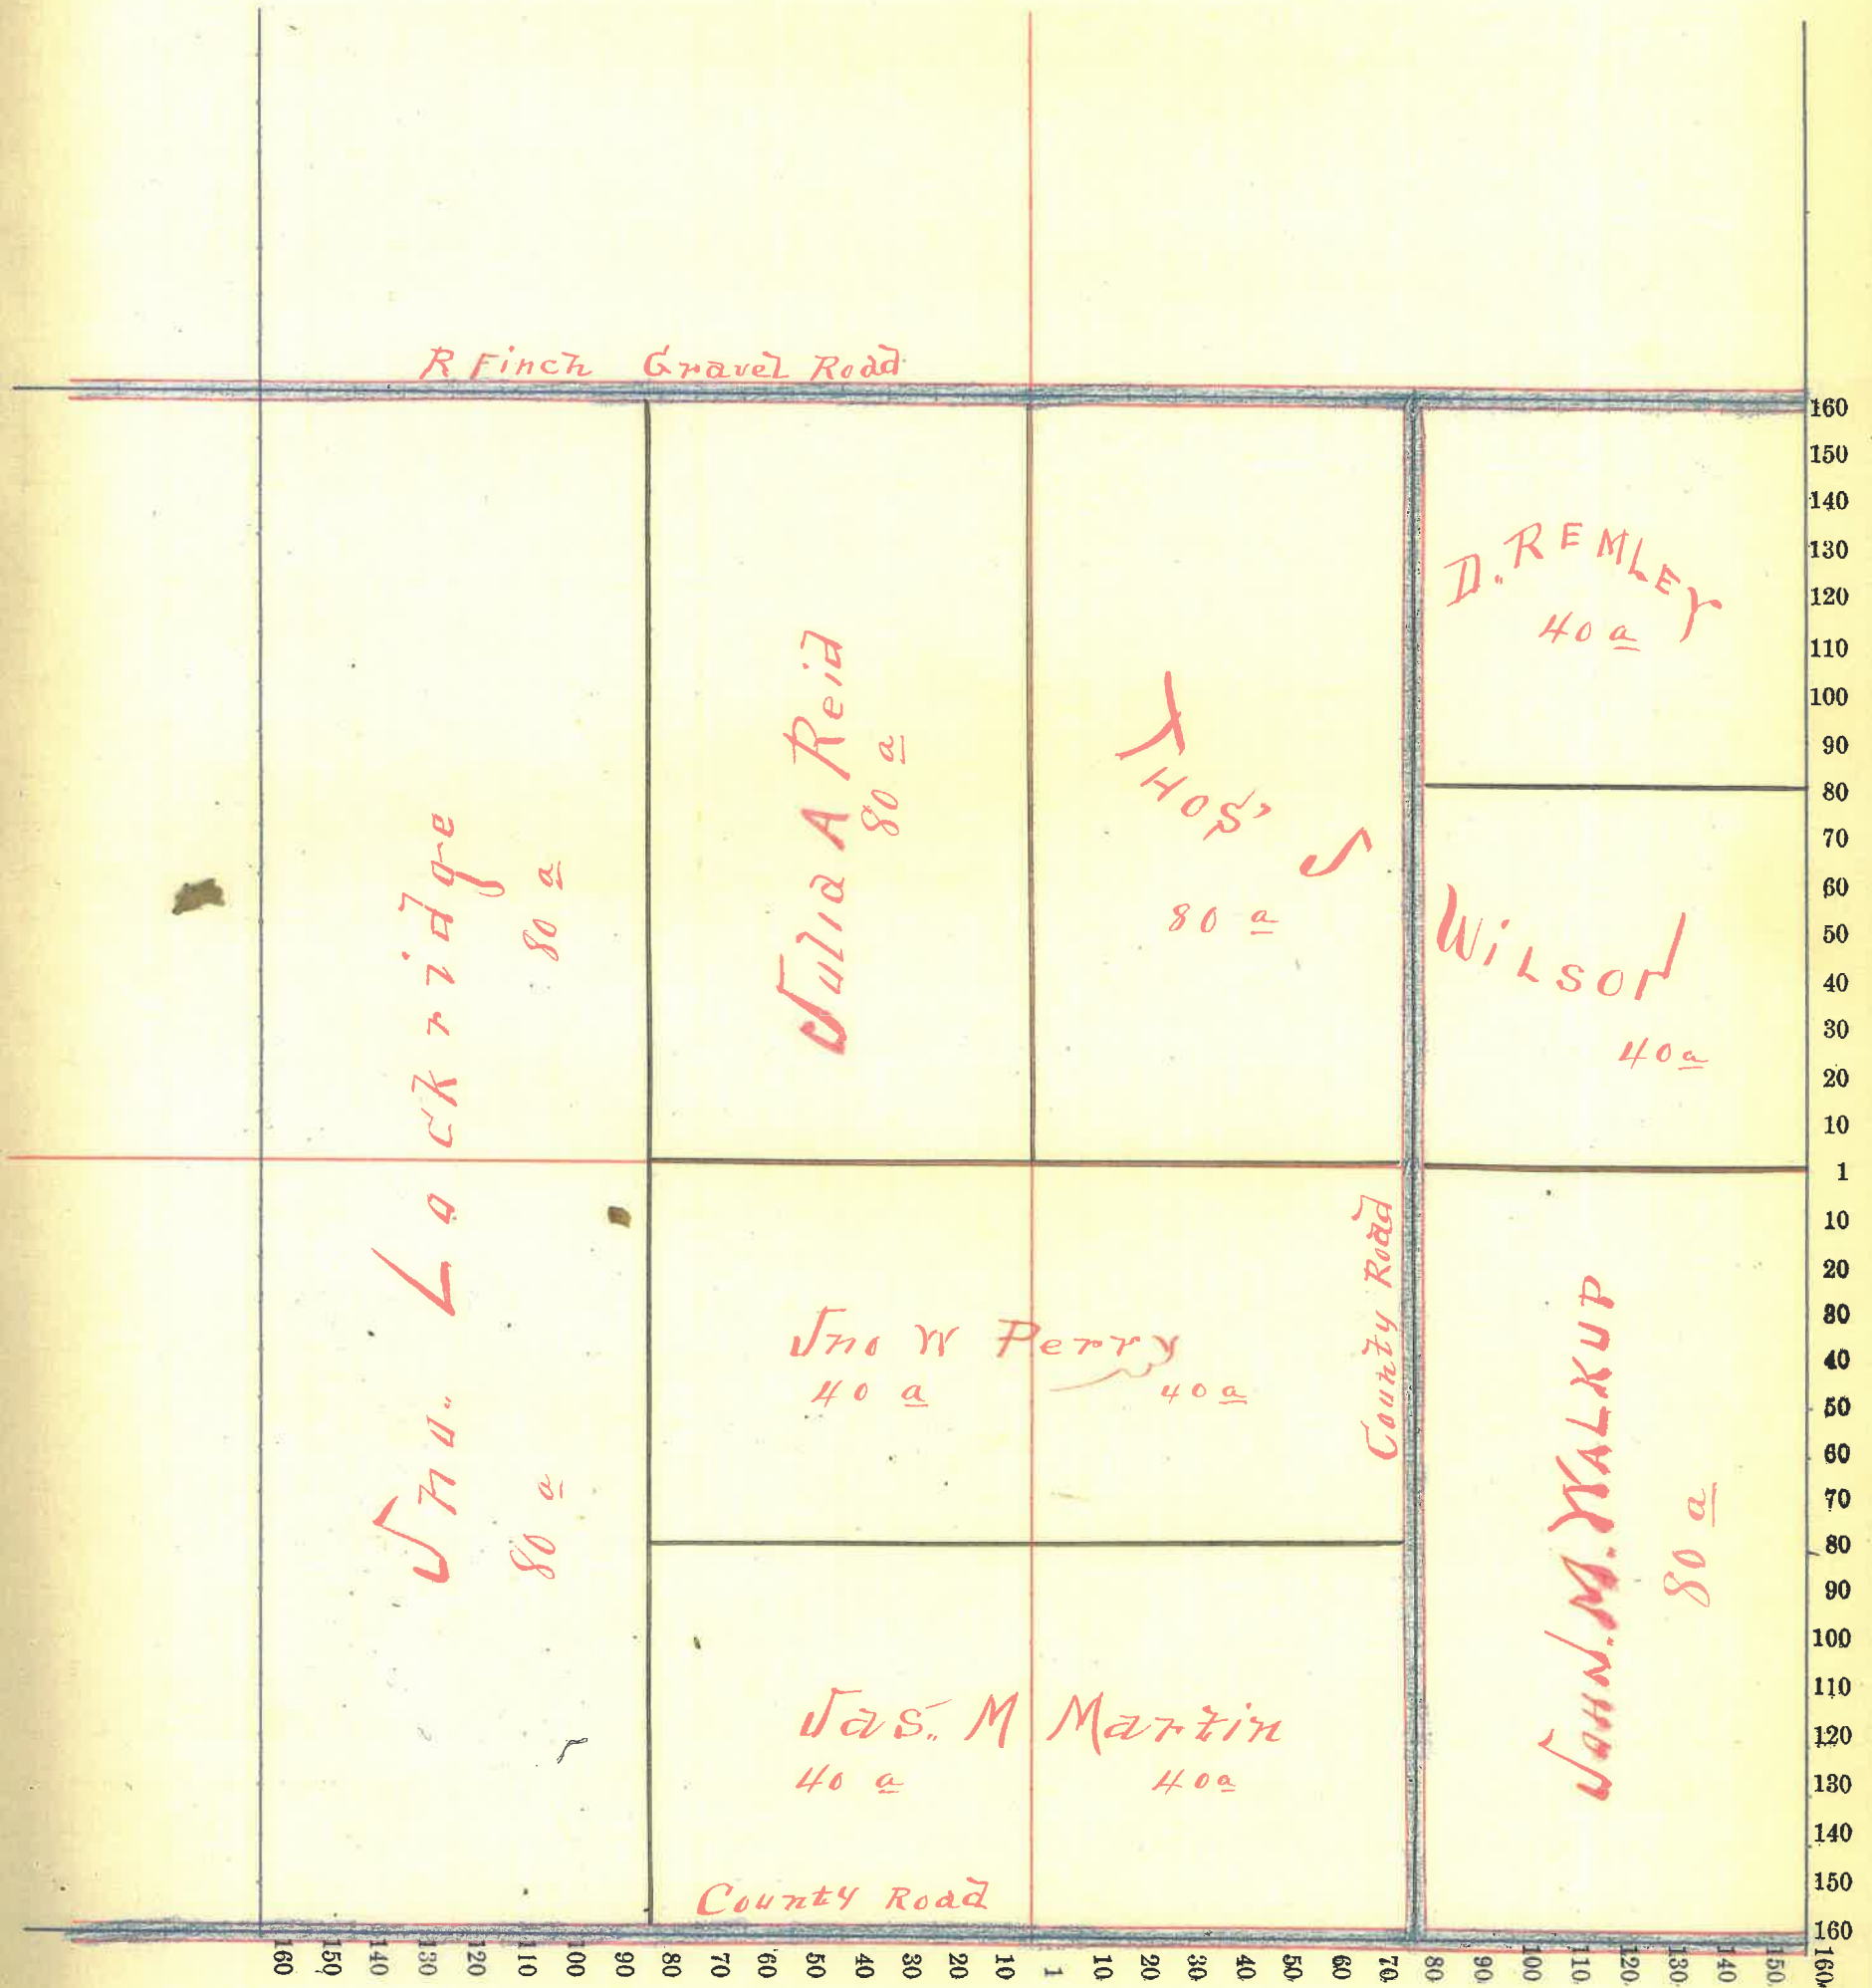 R Finch Gravel Road
D. REMLEY
40 a
Julia A Reid
80 a
THOS' J WILSON
80 a
40 a
Jno. Lockridge
80 a
80 a
County Road
Jno W Perry
40 a 40 a
JOHN. M. WALKUP
80 a
Jas. M Martin
40 a 40 a
County Road
160
150
140
130
120
110
100
90
80
70
60
50
40
30
20
10
1
10
20
30
40
50
60
70
80
90
100
110
120
130
140
150
160
160 150 140 130 120 110 100 90 80 70 60 50 40 30 20 10 1 10 20 30 40 50 60 70 80 90 100 110 120 130 140 150 160